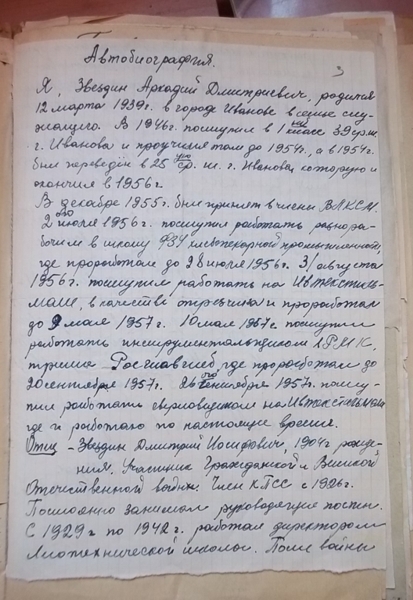 3
Автобиография.
Я, Звездин Аркадий Дмитриевич, родился
12 марта 1939г. в городе Иванове в семье слу-
жащего. В 1946г. поступил в 1 класс 39 ср.ш.
г. Иванова и проучился там до 1954г., а в 1954г.
был переведён в 25 ср. ш. г. Иванова, которую и
окончил в 1956г.
В декабре 1955г. был принят в члены ВЛКСМ.
2го июля 1956г. поступил работать разнора-
бочим в школу хлебопекарной промышленности,
где проработал до 28 июля 1956г. 31 августа
1956г. поступил работать на Ивтекстиль-
маш, в качестве и проработал
до 9 мая 1957г. 10 мая 1957г. поступил
работать инструментальщиком
треста Росглавхлеб, где проработал до
20 сентября 1957г. 26го сентября 1957г. посту-
пил работать сверловщиком на Ивтекстильмаш
где и работаю по настоящее время.
Отец - Звездин Дмитрий Иосифович, 1904г рожде-
ния, Участник Гражданской и Великой
Отечественной войны. Член КПСС с 1926г.
Постоянно занимал руководящие посты.
С 1929г по 1942г. работал директором
Лиотехнической школы. После войны